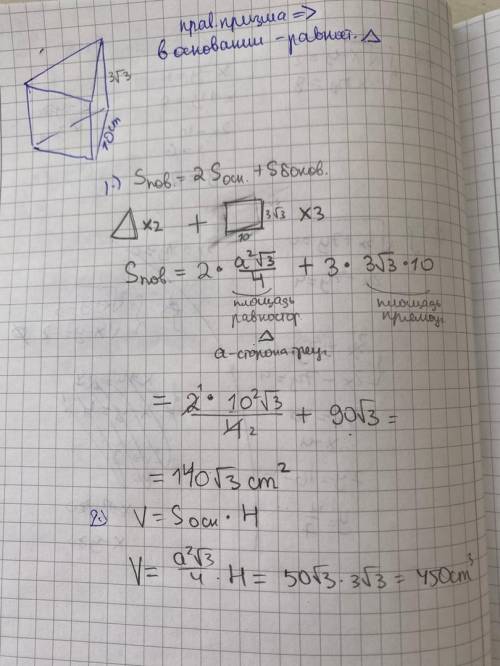 прав. призма =>
в основании - равност. △
3√3
10cm
1.) Sпов. = 2 Sосн. + Sбоков.
△ x2 + □ 3√3 x3
10
Sпов. = 2 · a²√3/4 + 3 · 3√3 · 10
площадь равностор. △
площадь прямоуг.
a - сторона треуг.
= 2¹ · 10²√3 / 4₂ + 90√3 =
= 140√3 cm²
2.) V = Sосн · H
V = a²√3/4 · H = 50√3 · 3√3 = 450cm³